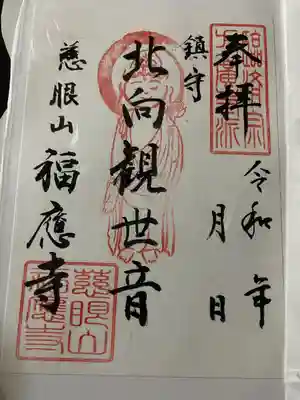 奉拝
令和 年
月 日
鎮守
北向観世音
慈眼山
福應寺
慈眼山
福應寺